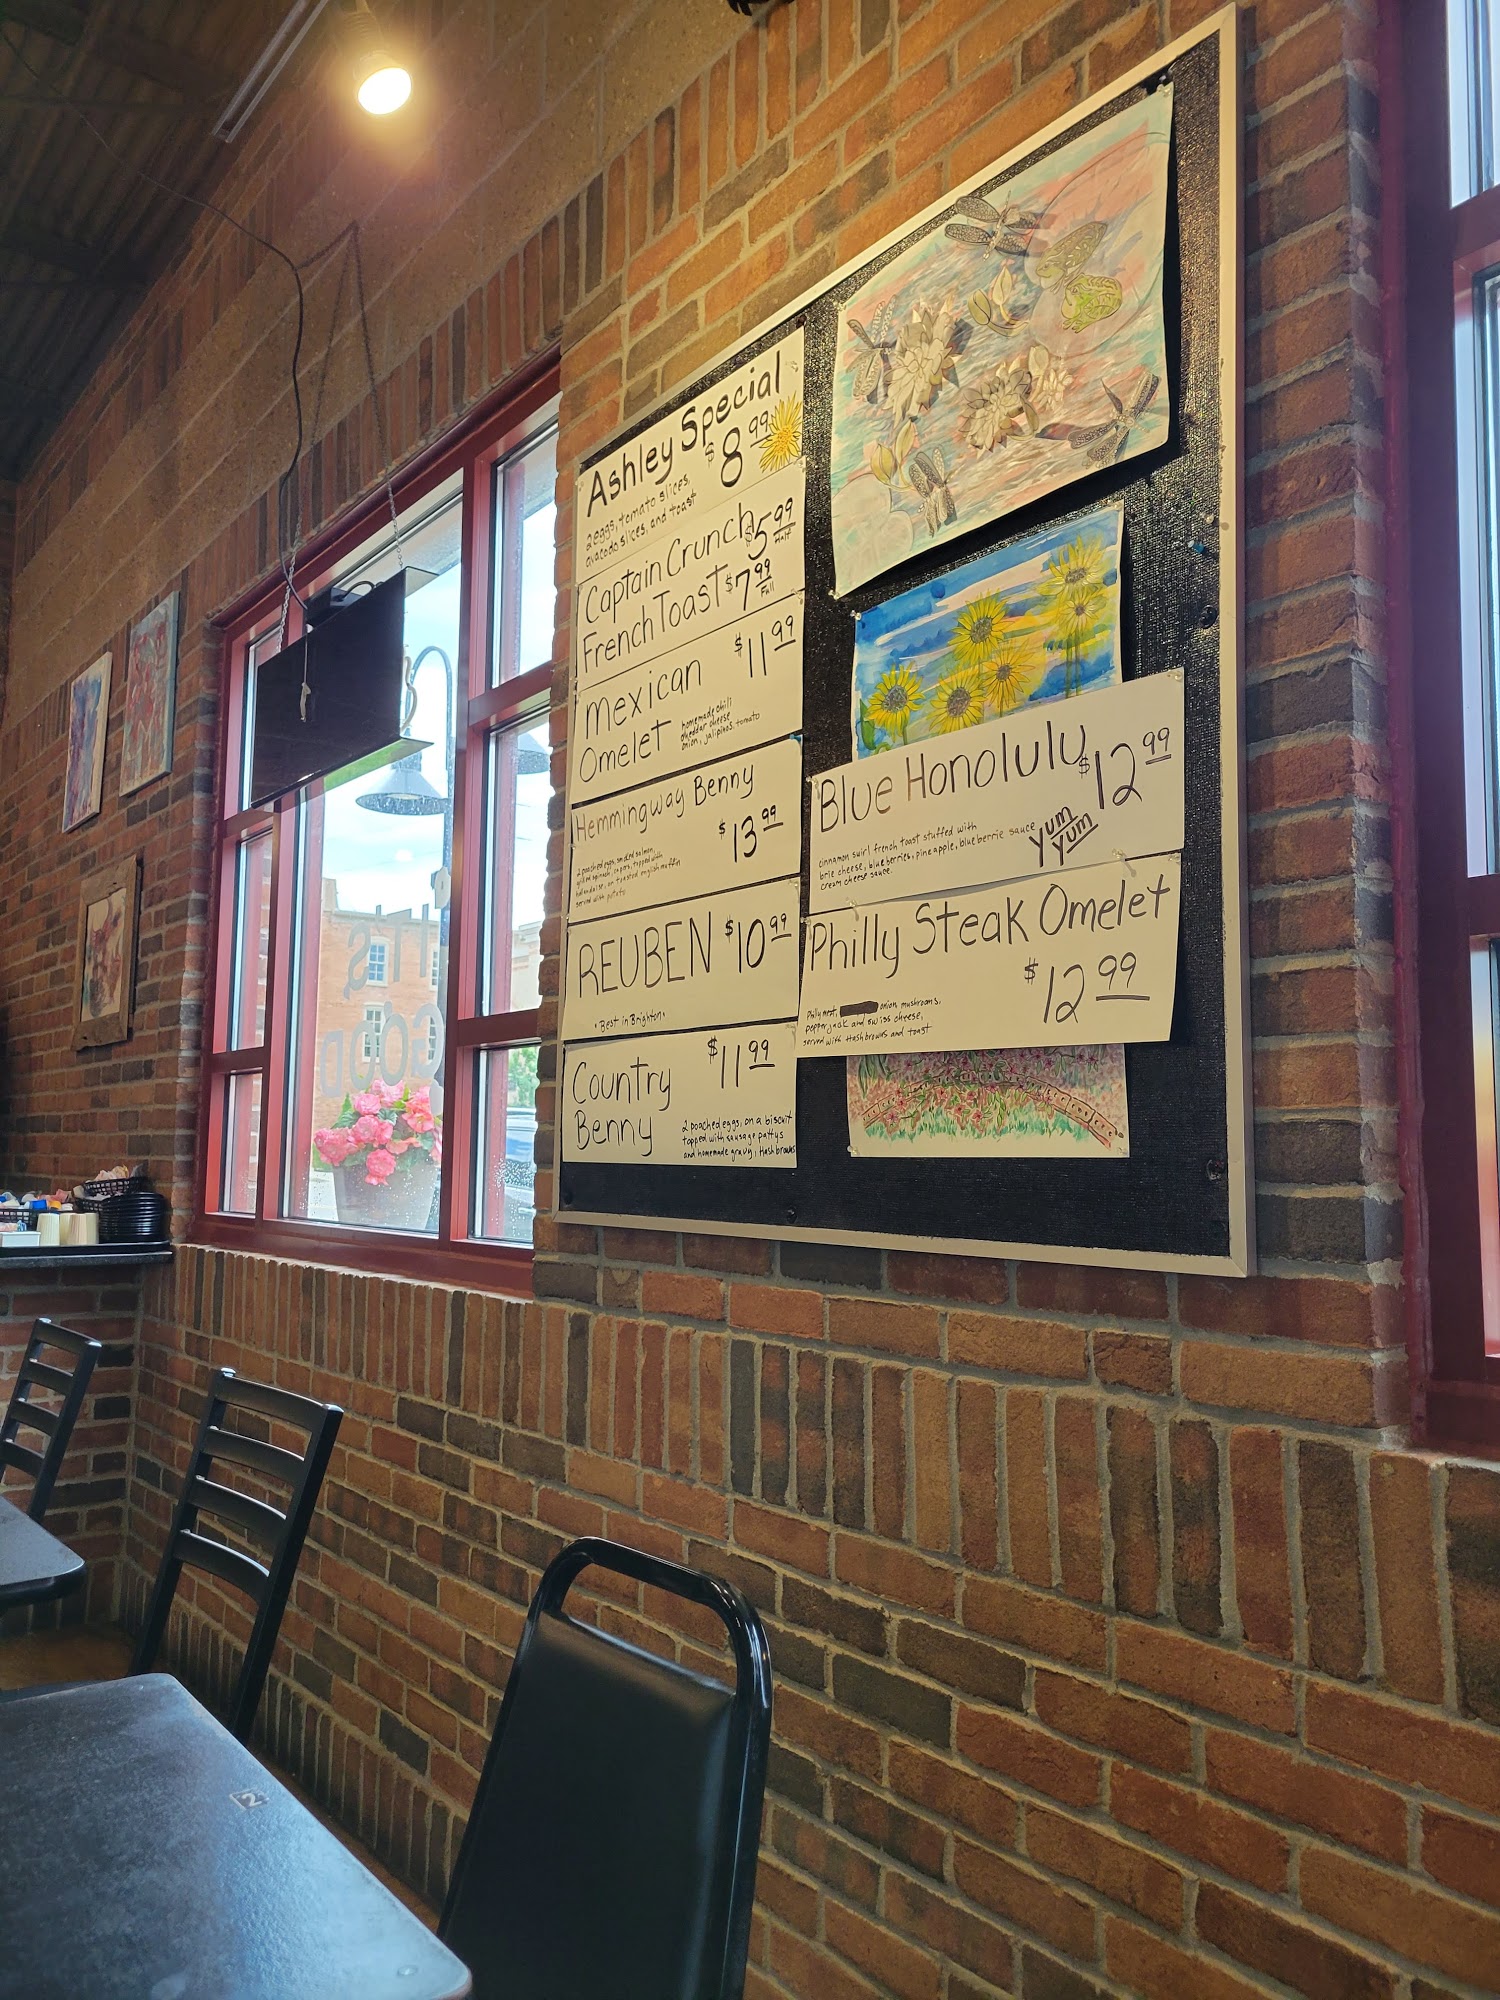 Ashley Special
$8.99
2 eggs, tomato slices,
avacado slices, and toast
Captain Crunch $5.99
Half
French Toast $7.99
Full
Mexican $11.99
Omelet
homemade chili
cheddar cheese
onion, jalipinos, tomato
Hemmingway Benny
$13.99
2 poached eggs, smoked salmon,
grilled spinach, capers, topped with
hollandaise, on toasted english muffin
served with potato
REUBEN $10.99
"Best in Brighton"
Country $11.99
Benny
2 poached eggs, on a biscuit
topped with sausage pattys
and homemade gravy, Hashbrowns
Blue Honolulu $12.99
cinnamon swirl french toast stuffed with
brie cheese, blueberries, pineapple, blueberrie sauce
cream cheese sauce.
Yum
Yum
Philly Steak Omelet
$12.99
Philly meat, onion, mushrooms,
pepperjack and swiss cheese,
served with Hashbrowns and toast
GOOD
2